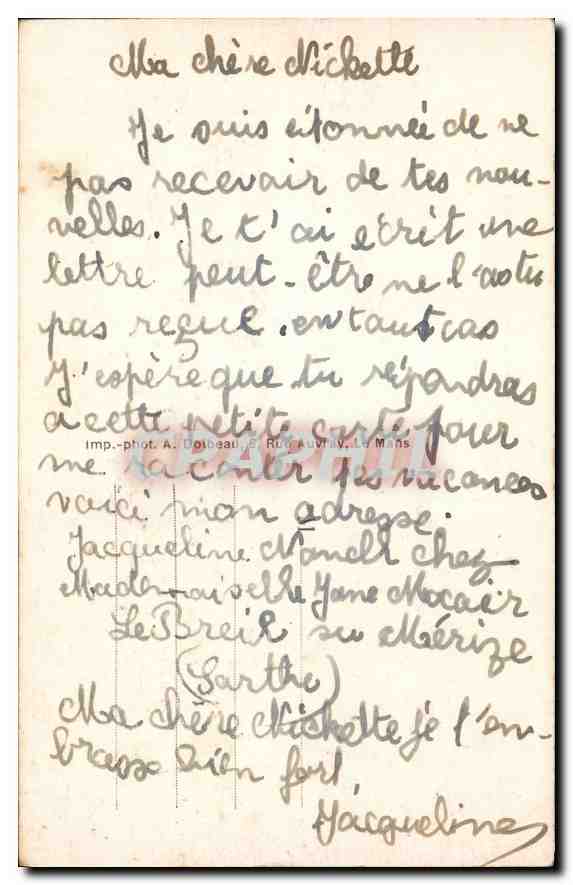 Ma chère Nickette
Je suis étonnée de ne
pas recevoir de tes nou-
velles. Je t'ai écrit une
lettre peut-être ne l'as tu
pas reçue. en tout cas
J'espère que tu répondras
a cette petite carte pour
Imp.-phot. A. Dolbeau, 8, Rue Auvray, Le Mans
me raconter tes vacances
voici mon adresse.
Jacqueline chez
Mademoiselle Jane
Le Breil su Mérize
(Sarthe)
Ma chère Nickette je t'em-
brasse bien fort,
Jacqueline